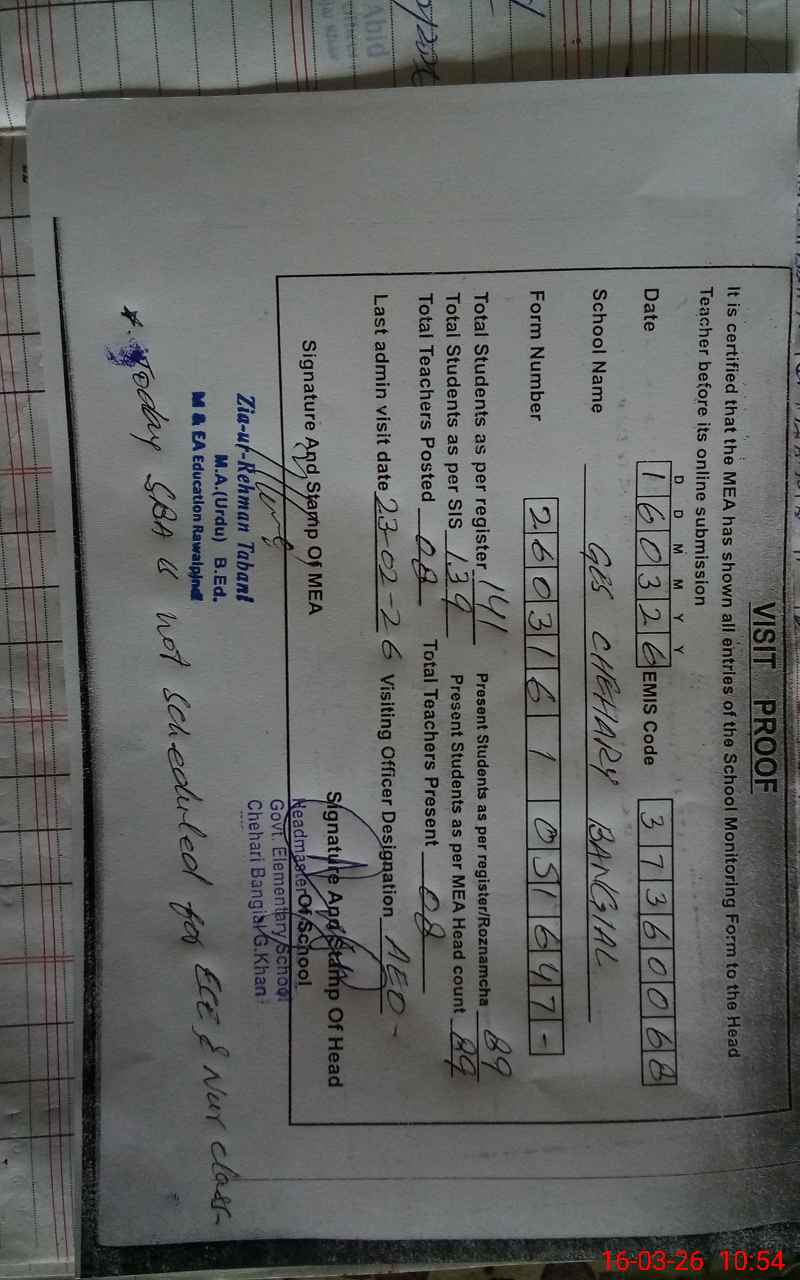 VISIT PROOF
It is certified that the MEA has shown all entries of the School Monitoring Form to the Head
Teacher before its online submission
D D M M Y Y
Date 160326 EMIS Code 37360068
School Name GES CHEHARY BANGIAL
Form Number 2603161051647-
Total Students as per register 141 Present Students as per register/Roznamcha 89
Total Students as per SIS 139 Present Students as per MEA Head count 89
Total Teachers Posted 08 Total Teachers Present 08
Last admin visit date 23-02-26 Visiting Officer Designation AEO-
Signature And Stamp Of MEA
Signature And Stamp Of Head
Of School
Zia-ur-Rehman Tabani
M.A.(Urdu) B.Ed.
M & EA Education Rawalpindi
Headmaster
Govt. Elementary School
Chehari Bangial G.Khan
*. Today SBA is not scheduled for ECE & Nur class-
Abid
16-03-26 10:54